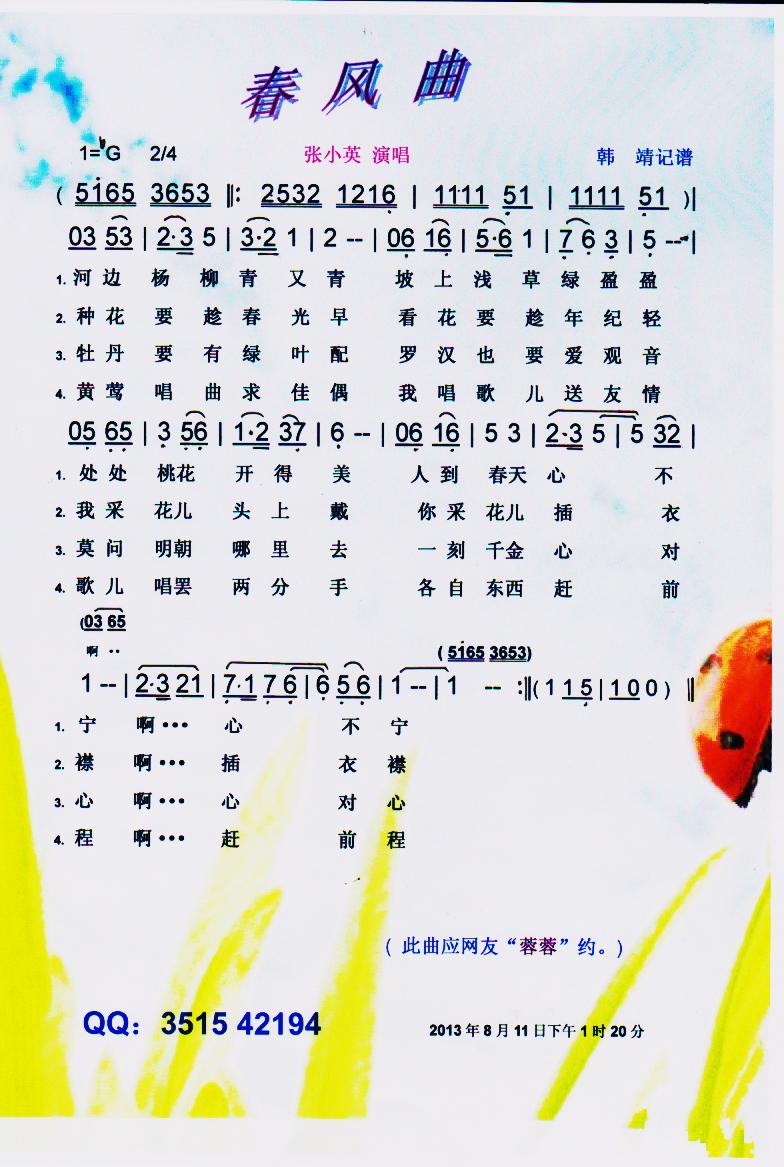 春风曲
1=♭G 2/4 张小英 演唱 韩 靖记谱
( 5165 3653 ‖: 2532 1216 | 1111 51 | 1111 51 )|
03 53 | 2·3 5 | 3·2 1 | 2 -- | 06 16 | 5·6 1 | 7 6 3 | 5 -- |
1. 河边 杨 柳 青 又 青 坡 上 浅 草 绿 盈 盈
2. 种花 要 趁 春 光 早 看 花 要 趁 年 纪 轻
3. 牡丹 要 有 绿 叶 配 罗 汉 也 要 爱 观 音
4. 黄莺 唱 曲 求 佳 偶 我 唱 歌 儿 送 友 情
05 65 | 3 56 | 1·2 37 | 6 -- | 06 16 | 5 3 | 2·3 5 | 5 32 |
1. 处处 桃花 开 得 美 人 到 春天 心 不
2. 我采 花儿 头 上 戴 你 采 花儿 插 衣
3. 莫问 明朝 哪 里 去 一 刻 千金 心 对
4. 歌儿 唱罢 两 分 手 各 自 东西 赶 前
(03 65
啊 ··
( 5165 3653)
1 -- | 2·3 21 | 7·1 7 6 | 6 5 6 | 1 -- | 1 -- :‖( 1 1 5 | 1 0 0 ) ‖
1. 宁 啊··· 心 不 宁
2. 襟 啊··· 插 衣 襟
3. 心 啊··· 心 对 心
4. 程 啊··· 赶 前 程
( 此曲应网友“蓉蓉”约。)
QQ：3515 42194
2013 年 8 月 11 日下午 1 时 20 分